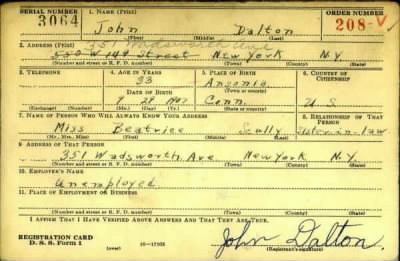 SERIAL NUMBER
1. NAME (Print)
ORDER NUMBER
3064
John Dalton
208-V
(First) (Middle) (Last)
2. ADDRESS (Print)
351 Wadsworth Ave
550 W 149 Street New York N.Y.
(Number and street or R. F. D. number) (Town) (County) (State)
3. TELEPHONE
4. AGE IN YEARS
5. PLACE OF BIRTH
6. COUNTRY OF CITIZENSHIP
33
Ansonia
DATE OF BIRTH
(Town or county)
9 28 1907
Conn.
U S
(Exchange) (Number)
(Mo.) (Day) (Yr.)
(State or country)
7. NAME OF PERSON WHO WILL ALWAYS KNOW YOUR ADDRESS
8. RELATIONSHIP OF THAT PERSON
Miss Beatrice Scully
Sister-in-law
(Mr., Mrs., Miss) (First) (Middle) (Last)
9. ADDRESS OF THAT PERSON
351 Wadsworth Ave New York N.Y.
(Number and street or R. F. D. number) (Town) (County) (State)
10. EMPLOYER'S NAME
Unemployed
11. PLACE OF EMPLOYMENT OR BUSINESS
(Number and street or R. F. D. number) (Town) (County) (State)
I AFFIRM THAT I HAVE VERIFIED ABOVE ANSWERS AND THAT THEY ARE TRUE.
REGISTRATION CARD
D. S. S. Form 1
(over)
16-17105
John Dalton
(Registrant's signature)